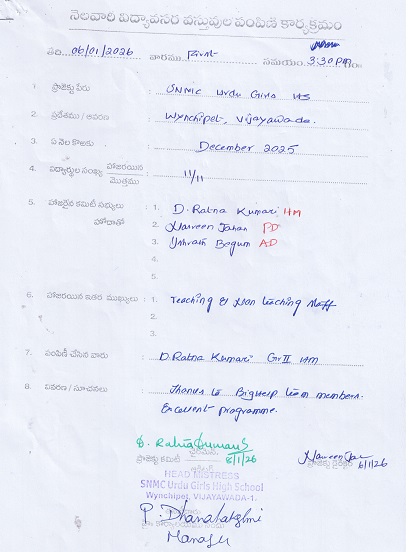 నెలవారి విద్యావసర వస్తువుల పంపిణీ కార్యక్రమం
తేది 06/01/2026 వారము First సమయం 3:30 PM
1. ప్రాజెక్టు పేరు : SNMC Urdu Girls HS
2. ప్రదేశము / ఆవరణ : Wynchipet, Vijayawada.
3. ఏ నెల కొరకు : December 2025
4. విద్యార్థుల సంఖ్య హాజరయిన / మొత్తము : 11/11
5. హాజరైన కమిటీ సభ్యులు : 1. D. Ratna Kumari HM
హోదాతో 2. Narveen Jahan PD
3. Ishrath Begum AD
4.
5.
6. హాజరయిన ఇతర ముఖ్యులు : 1. Teaching & Non teaching staff
2.
3.
7. పంపిణీ చేసిన వారు : D. Ratna Kumari Gr II HM
8. వివరణ / సూచనలు : Thanks to Bighelp team members.
Excellent programme.
D. Ratna Kumari
ప్రాజెక్టు కమిటీ ఛైర్మన్ 6/1/26
ప్రాజెక్టు డైరెక్టర్ 6/1/26
HEAD MISTRESS
SNMC Urdu Girls High School
Wynchipet, VIJAYAWADA-1.
P. Dhanalakshmi
Manager